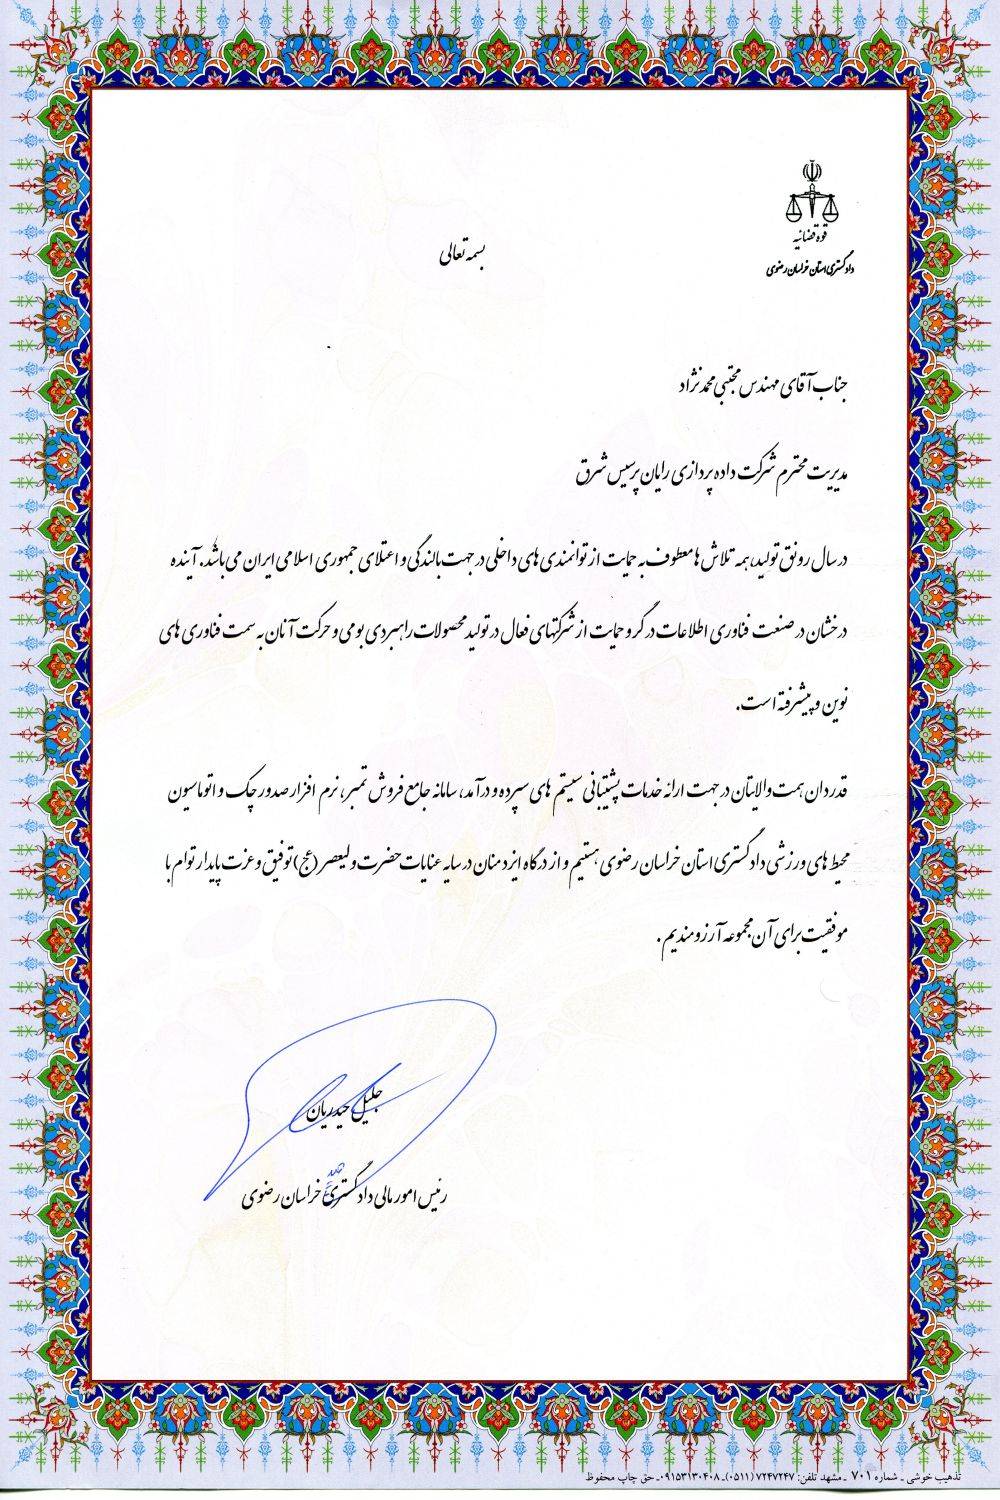 قوه قضائیه
دادگستری استان خراسان رضوی
بسمه تعالی
جناب آقای مهندس مجتبی محمدنژاد
مدیریت محترم شرکت داده پردازی رایان پرسیس شرق
در سال رونق تولید، همه تلاش ها معطوف به حمایت از توانمندی های داخلی در جهت بالندگی و اعتلای جمهوری اسلامی ایران می باشد. آینده
درخشان در صنعت فناوری اطلاعات در گرو حمایت از شرکتهای فعال در تولید محصولات راهبردی بومی و حرکت آنان به سمت فناوری های
نوین و پیشرفته است.
قدردان همت والایتان در جهت ارائه خدمات پشتیبانی سیستم های سپرده و درآمد، سامانه جامع فروش تمبر، نرم افزار صدور چک و اتوماسیون
محیط های ورزشی دادگستری استان خراسان رضوی هستیم و از درگاه ایزد منان در سایه عنایات حضرت ولیعصر (عج) توفیق و عزت پایدار توام با
موفقیت برای آن مجموعه آرزومندیم .
جلیل حیدریان
رئیس امور مالی دادگستری خراسان رضوی
تذهیب خوشی ـ شماره ۷۰۱ ـ مشهد تلفن: ۷۲۴۷۲۴۷ (۰۵۱۱)ـ ۰۹۱۵۳۱۳۰۴۰۸ـ حق چاپ محفوظ